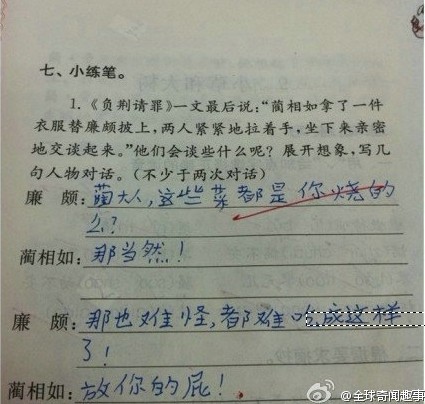 七、小练笔。
1.《负荆请罪》一文最后说:“蔺相如拿了一件
衣服替廉颇披上,两人紧紧地拉着手,坐下来亲密
地交谈起来。”他们会谈些什么呢?展开想象,写几
句人物对话。(不少于两次对话)
廉 颇:蔺大人,这些菜都是你烧的
么?
蔺相如:那当然!
廉 颇:那也难怪,都难吃成这样
了!
蔺相如:放你的屁!
@全球奇闻趣事